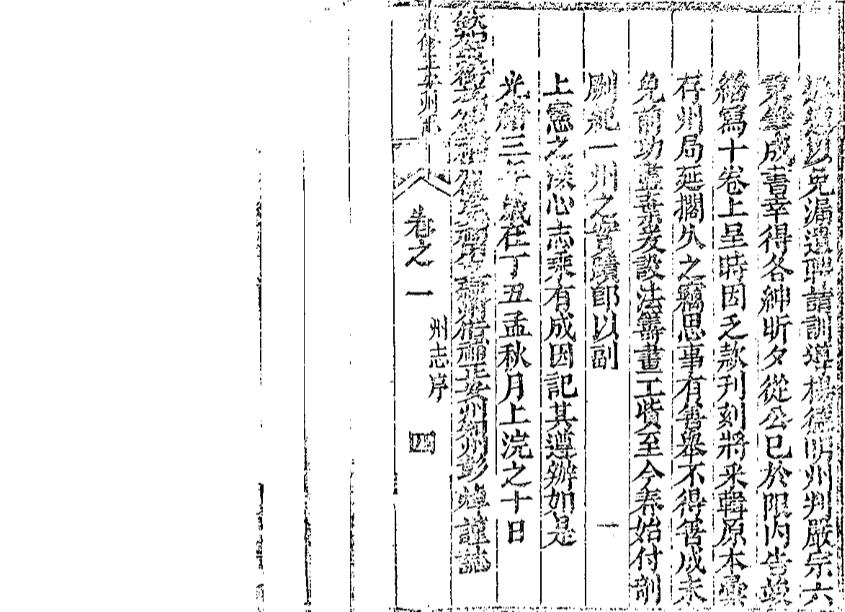 以免漏遺聘請訓導楊德明州判嚴宗六
成書幸得各紳昕夕從公已於限內告竣
繕寫十卷上呈時因乏款刊刻將來韓原本彙
存州局延擱久之竊思事有善舉不得善成未
免前功盡棄爰設法籌畫工貲至今春始付剞
劂紀一州之實蹟即以副
上憲之深心志乘有成因記其遵辦如是
光緒三年歲在丁丑孟秋月上浣之十日
正安州知州彭焯謹誌
續修正安州志
卷之一
州志序
四